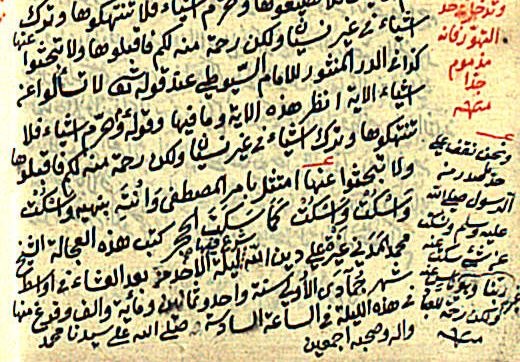 فلا تضيعوها وحرم اشياء فلا تنتهكوها وترك
اشياء في غير نسيان ولكن رحمة منه لكم فاقبلوها ولا تبحثوا عنها
كذا في الدر المنثور للامام السيوطي عند قوله تعالى لا تسألوا عن
اشياء الاية انظر هذه الاية وما فيها وقوله وحرم اشياء فلا
تنتهكوها وترك اشياء في غير نسيان ولكن رحمة منه لكم فاقبلوها
ولا تبحثوا عنها امتثل بامر المصطفى وانته بنهيه واسكت
واسكت واسكت كما سكت الحجر كتب هذه العجالة الشيخ
محمد على دين الله ليلة الاحد بعد العشاء في اواسط
شهر جمادى الاولى سنة واحد وثمانين ومائة والف وفرغ منها
في هذه الليلة في الساعة السادسة صلى الله على سيدنا محمد
واله وصحبه اجمعين
حد
التهور فانه
مذموم
جدا
منه
ونحن نقف على
حد رمة
الرسول صلى الله
عليه وسلم ونسكت
عن شيء سكت عنه
ربنا
ولكن رحمة
منه